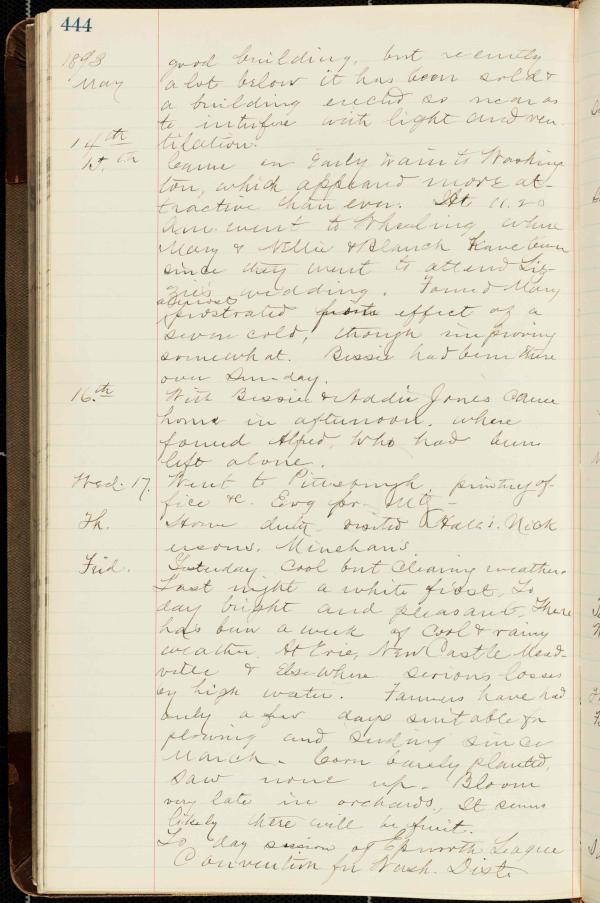 444
1893 good building, but recently
May a lot below it has been sold &
a building erected so near as
to interfere with light and ven
14th tilation.
15th Came in Early train to Washing
ton, which appeared more at-
tractive than ever. At 11.20
am went to Wheeling where
Mary & Nellie & Blanch have been
since they went to attend Liz-
zie's wedding. Found Mary
almost
prostrated from effect of a
severe cold, though improving
somewhat. Bessie had been there
over Sunday.
16th With Bessie & Addie Jones came
home in afternoon, where
found Alfred, who had been
left alone.
Wed. 17. Went to Pittsburgh, printing of-
fice &c. Evg pr. mtg -
Th. Home duty - visited Hall's. Nick
ersons, Minehan's.
Frid. Yesterday cool but clearing weather.
Last night a white frost. To
day bright and pleasant. There
has been a week of cool & rainy
weather. At Erie, New Castle Mead-
ville & Elsewhere serious losses
by high water. Farmers have had
only a few days suitable for
plowing and seeding since
March. Corn barely planted,
saw none up. Bloom
very late in orchards, It seems
likely there will be fruit.
To day session of Epworth League
Convention for Wash. Dist.